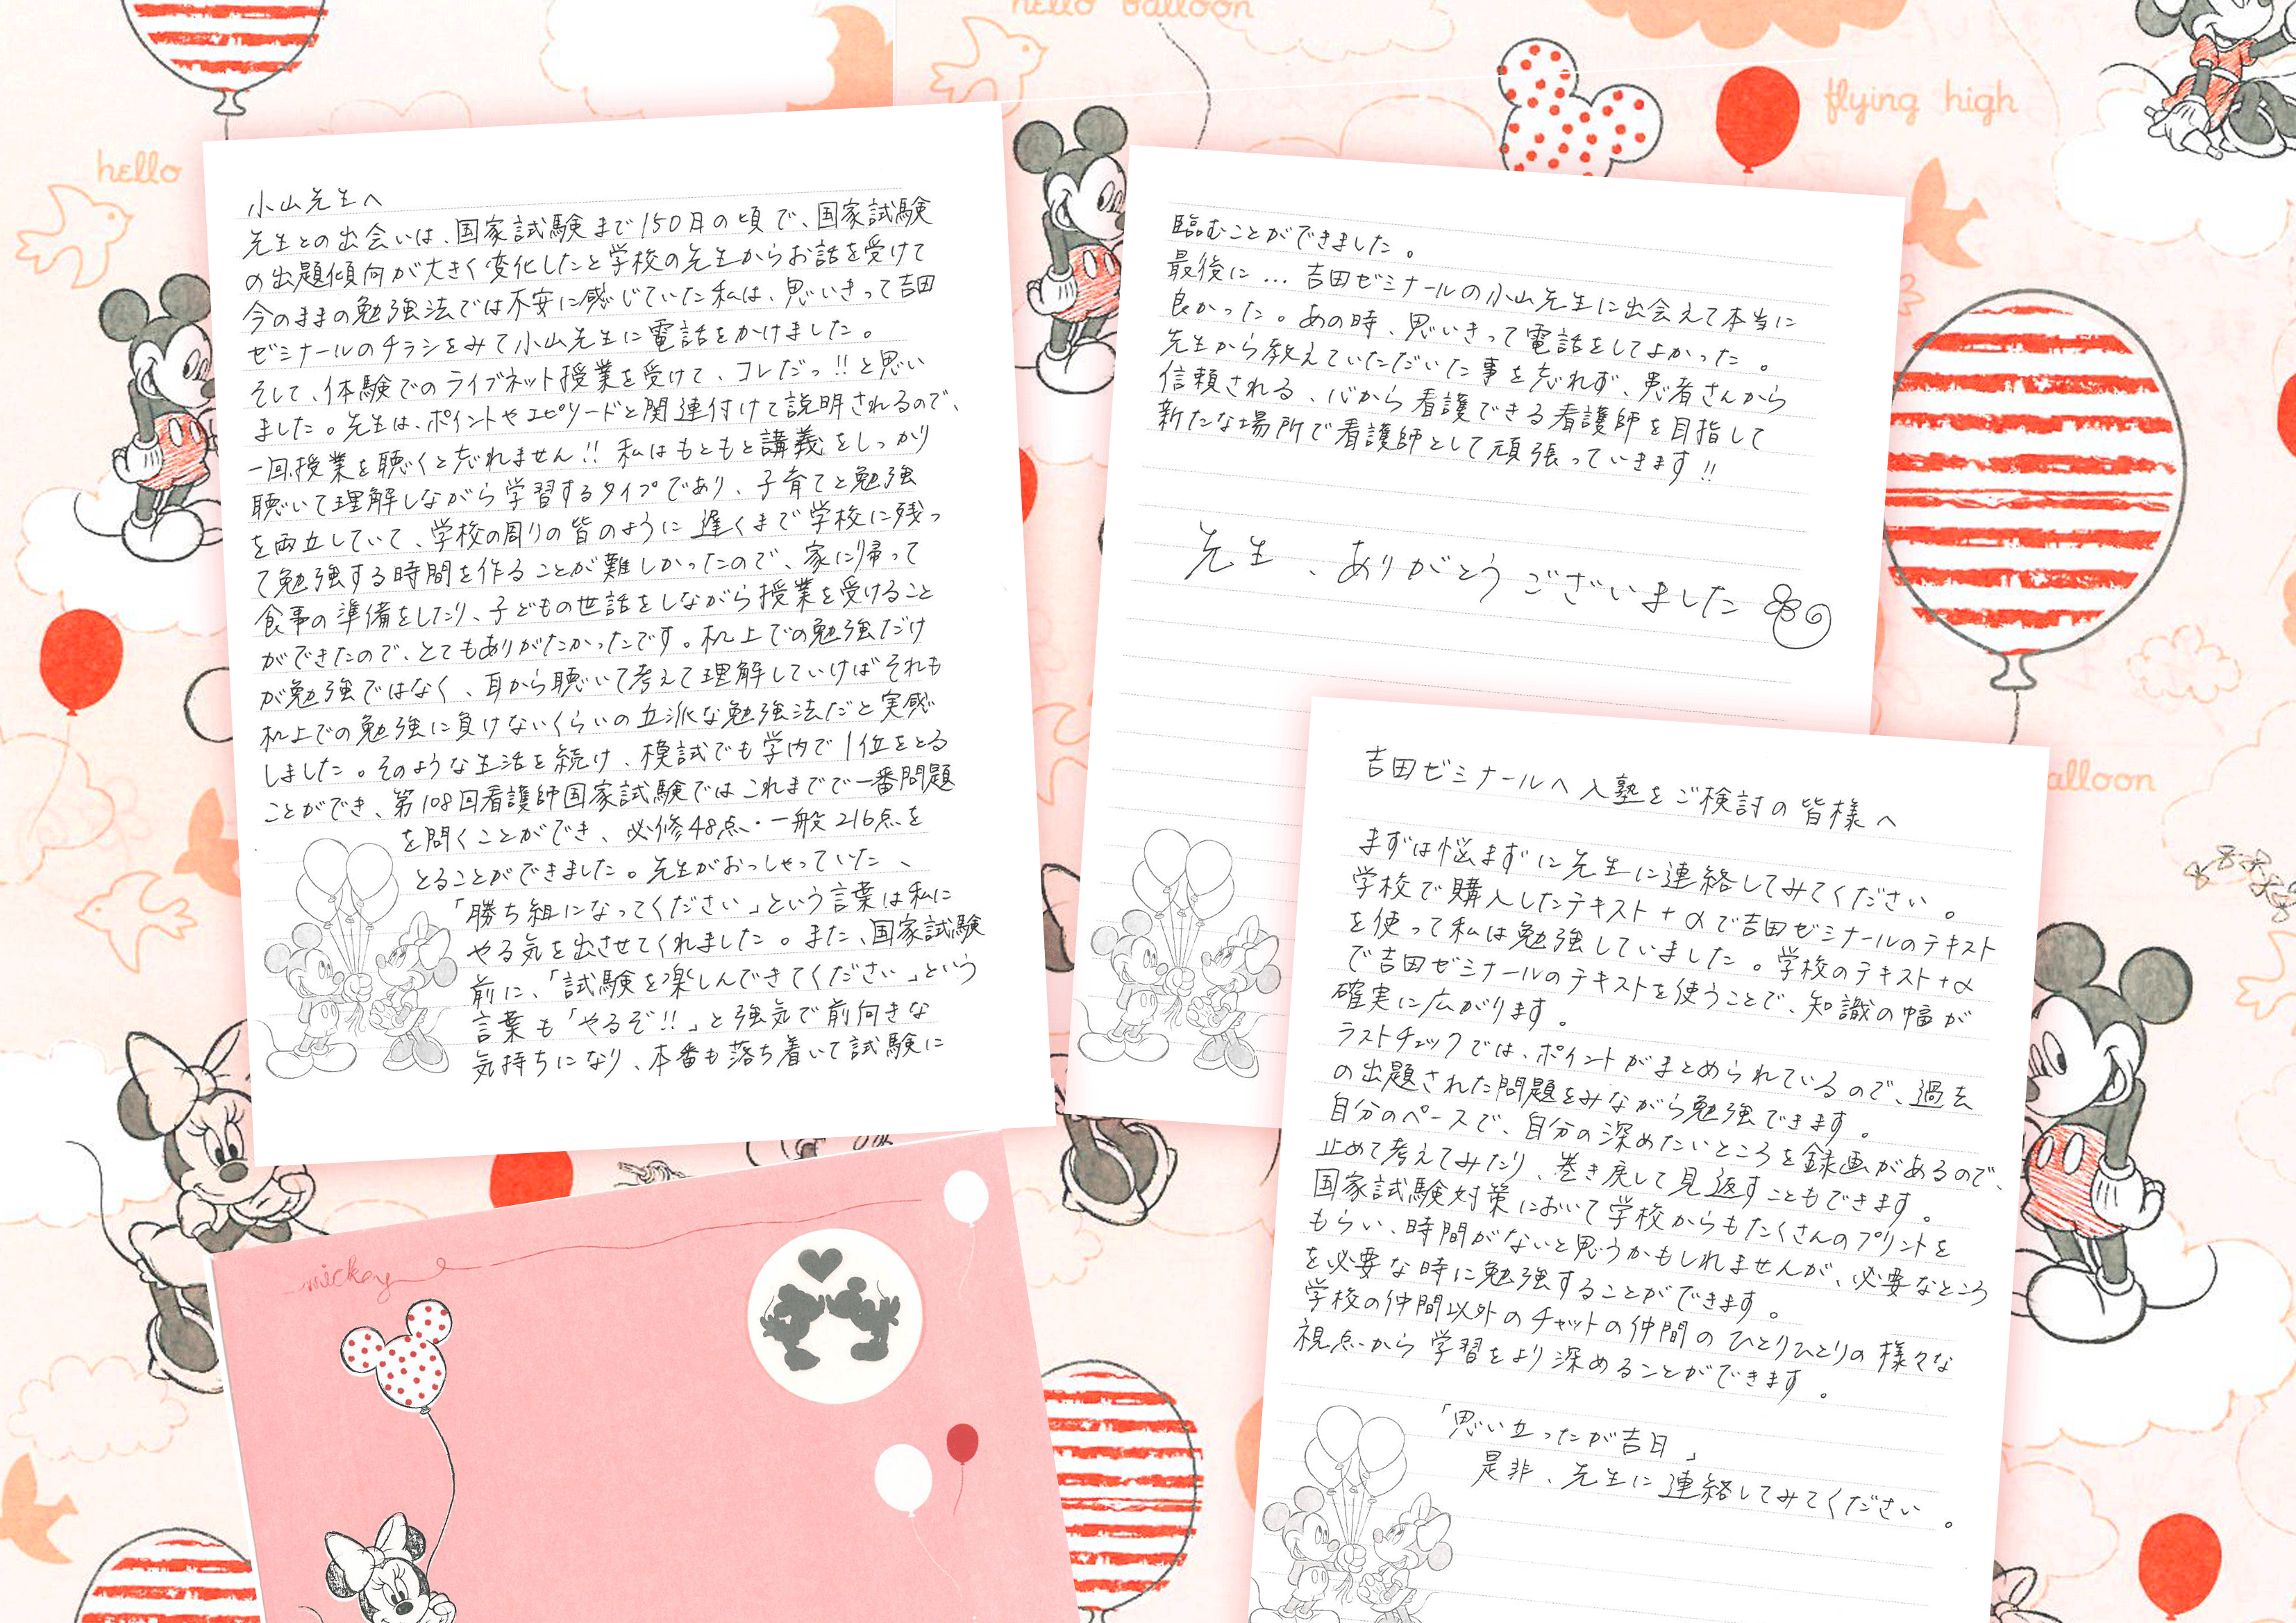 小山先生へ
先生との出会いは、国家試験まで150日の頃で、国家試験
の出題傾向が大きく変化したと学校の先生からお話を受けて
今のままの勉強法では不安に感じていた私は、思いきって吉田
ゼミナールのチラシをみて小山先生に電話をかけました。
そして、体験でのライブネット授業を受けて、コレだっ!!と思い
ました。先生は、ポイントやエピソードと関連付けて説明されるので、
一回授業を聴くと忘れません!! 私はもともと講義をしっかり
聴いて理解しながら学習するタイプであり、子育てと勉強
を両立していて、学校の周りの皆のように遅くまで学校に残っ
て勉強する時間を作ることが難しかったので、家に帰って
食事の準備をしたり、子どもの世話をしながら授業を受けること
ができたので、とてもありがたかったです。机上での勉強だけ
が勉強ではなく、耳から聴いて考えて理解していけばそれも
机上での勉強に負けないくらいの立派な勉強法だと実感
しました。そのような生活を続け、模試でも学内で1位をとる
ことができ、第108回看護師国家試験ではこれまでで一番問題
を問くことができ、必修48点・一般216点を
とることができました。先生がおっしゃっていた、
「勝ち組になってください」という言葉は私に
やる気を出させてくれました。また、国家試験
前に、「試験を楽しんできてください」という
言葉も「やるぞ!!」と強気で前向きな
気持ちになり、本番も落ち着いて試験に
臨むことができました。
最後に… 吉田ゼミナールの小山先生に出会えて本当に
良かった。あの時、思いきって電話をしてよかった。
先生から教えていただいた事を忘れず、患者さんから
信頼される、心から看護できる看護師を目指して
新たな場所で看護師として頑張っていきます!!
先生、ありがとうございました
吉田ゼミナールへ入塾をご検討の皆様へ
まずは悩まずに先生に連絡してみてください。
学校で購入したテキスト+αで吉田ゼミナールのテキスト
を使って私は勉強していました。学校のテキスト+α
で吉田ゼミナールのテキストを使うことで、知識の幅が
確実に広がります。
ラストチェックでは、ポイントがまとめられているので、過去
の出題された問題をみながら勉強できます。
自分のペースで、自分の深めたいところを録画があるので、
止めて考えてみたり、巻き戻して見返すこともできます。
国家試験対策において学校からもたくさんのプリントを
もらい、時間がないと思うかもしれませんが、必要なところ
を必要な時に勉強することができます。
学校の仲間以外のチャットの仲間のひとりひとりの様々な
視点から学習をより深めることができます。
「思い立ったが吉日」
是非、先生に連絡してみてください。
hello balloon
flying high
hello
alloon
mickey